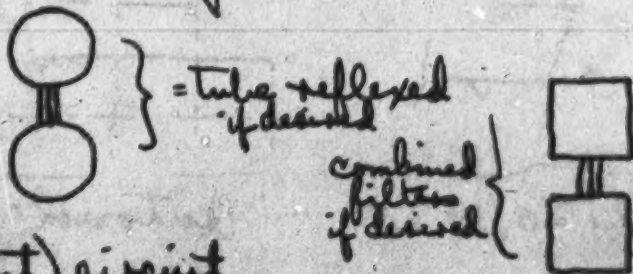 = Tube reflexed
if desired
combined
filters
if desired
circuit